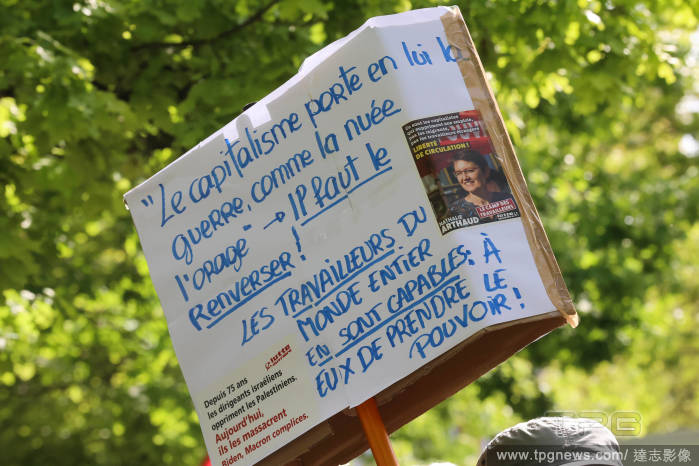 "Le capitalisme porte en lui la
guerre, comme la nuée
l'orage" → IP faut le
Renverser !
LES TRAVAILLEURS DU
MONDE ENTIER
EN SONT CAPABLES : À
EUX DE PRENDRE LE
POUVOIR !
Ce sont les capitalistes
qui suppriment nos emplois,
pas les migrants,
pas les travailleurs étrangers
LIBERTÉ
DE CIRCULATION !
NATHALIE
ARTHAUD
LE CAMP DES
TRAVAILLEURS
lutte
Depuis 75 ans
les dirigeants israéliens
oppriment les Palestiniens.
Aujourd'hui,
ils les massacrent
Biden, Macron complices.
TPG
www.tpgnews.com/達志影像